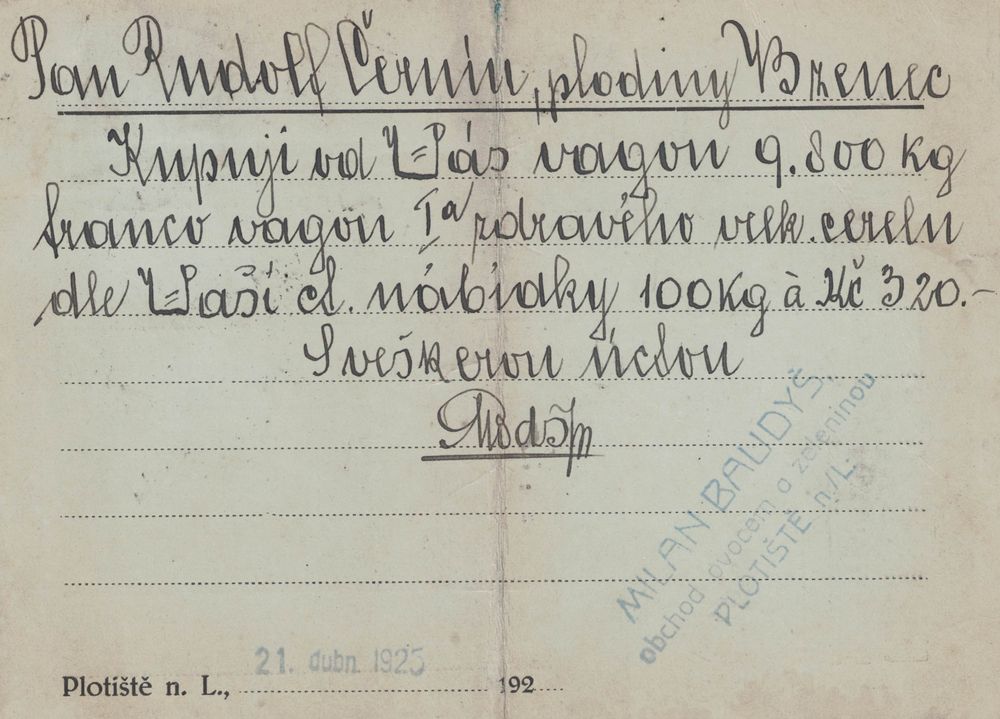 Pan Rudolf Černín, plodiny Bzenec
Kupuji od Vás vagon 9.800 kg
franco vagon Ia zdravého velk. cereln
dle Vaší ct. nábídky 100Kg à Kč 320.-
S veškerou úctou
MILAN BAUDYŠ,
obchod ovocem a zeleninou
PLOTIŠTĚ n./L.
21. dubn. 1925
Plotiště n. L., 192